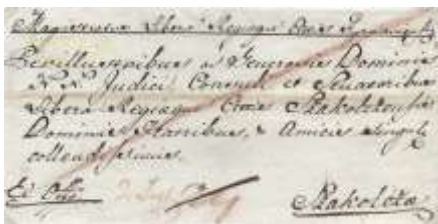 Magistratus Liberae Regiaeque Cittis
Perillustribus ac Generosis Dominis
N. N. Judici Consuli et Senatoribus
Liberae Regiaeque Cittis Szakoltzensis
Dominis Fratribus, & Amicis singulis
collendissimis.
Ex Offo
Szakoltza